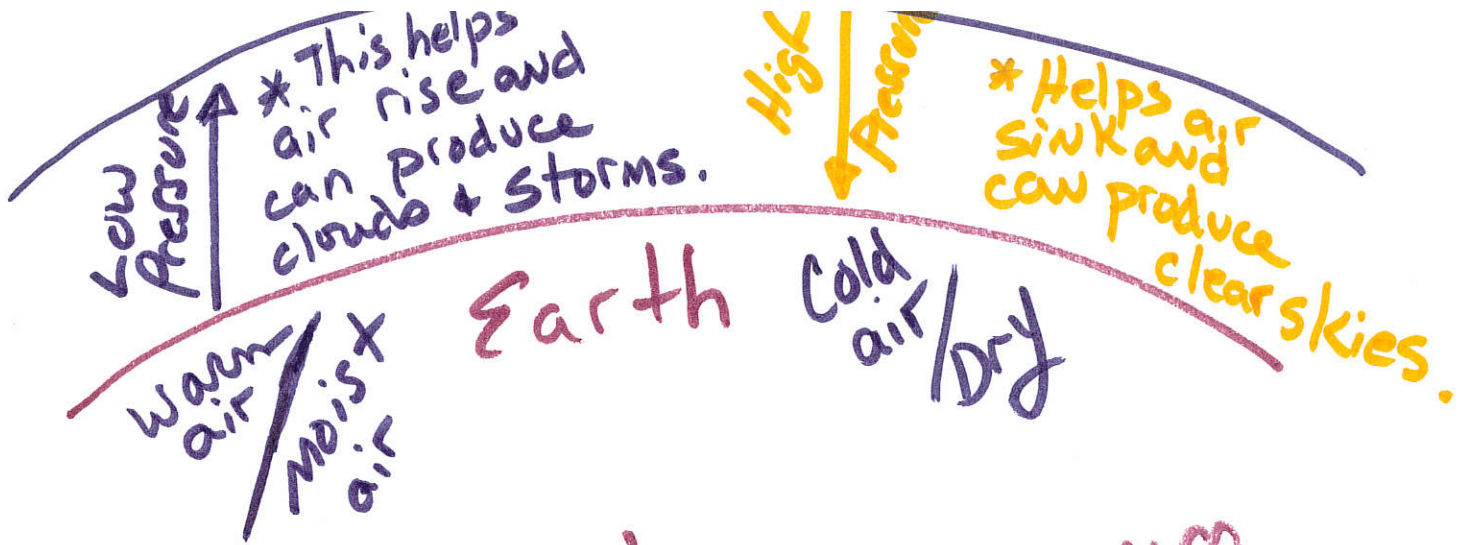 Low
Pressure
* This helps
air rise and
can produce
clouds & Storms.
High
Pressure
* Helps air
sink and
can produce
clear skies.
Earth
Warm
air /
Moist
air
Cold
air / Dry